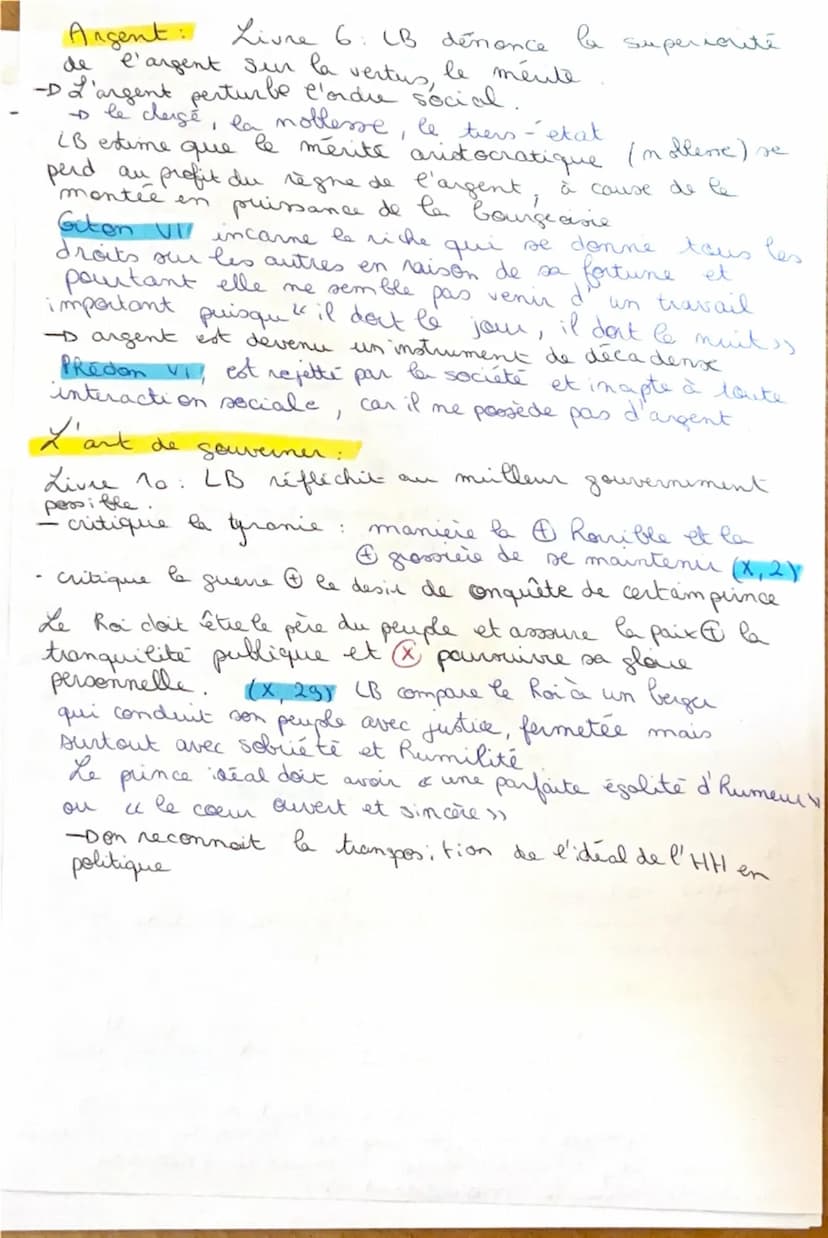 Argent : Livre 6 : LB dénonce la superiorité
de l'argent sur la vertus, le mérite.
→ L'argent perturbe l'ordre social.
→ le clergé, la noblesse, le tiers-état
LB estime que le mérite aristocratique (noblesse) se
perd au profit du règne de l'argent, à cause de la
montée en puissance de la bourgeoisie
Giton VI incarne le riche qui se donne tous les
droits sur les autres en raison de sa fortune et
pourtant elle ne semble pas venir d'un travail
important puisqu'« il dort le jour, il dort la nuit »
→ argent est devenu un instrument de décadence
Phédon VI, est rejetté par la société et inapte à toute
interaction sociale, car il ne possède pas d'argent
L'art de gouverner :
Livre 10 : LB réfléchit au meilleur gouvernement
possible.
- critique la tyranie : manière la ⊕ horrible et la
⊕ grossière de se maintenir (X, 2)
- critique la guerre ⊕ le desir de conquête de certain prince
Le Roi doit être le père du peuple et assure la paix ⊕ la
tranquilité publique et ⓧ poursuivre sa gloire
personnelle. (X, 29) LB compare le Roi à un berger
qui conduit son peuple avec justice, fermetée mais
surtout avec sobriété et humilité
Le prince idéal doit avoir « une parfaite égalité d'humeur »
ou « le cœur ouvert et sincère »
→ on reconnait la transposition de l'idéal de l'HH en
politique